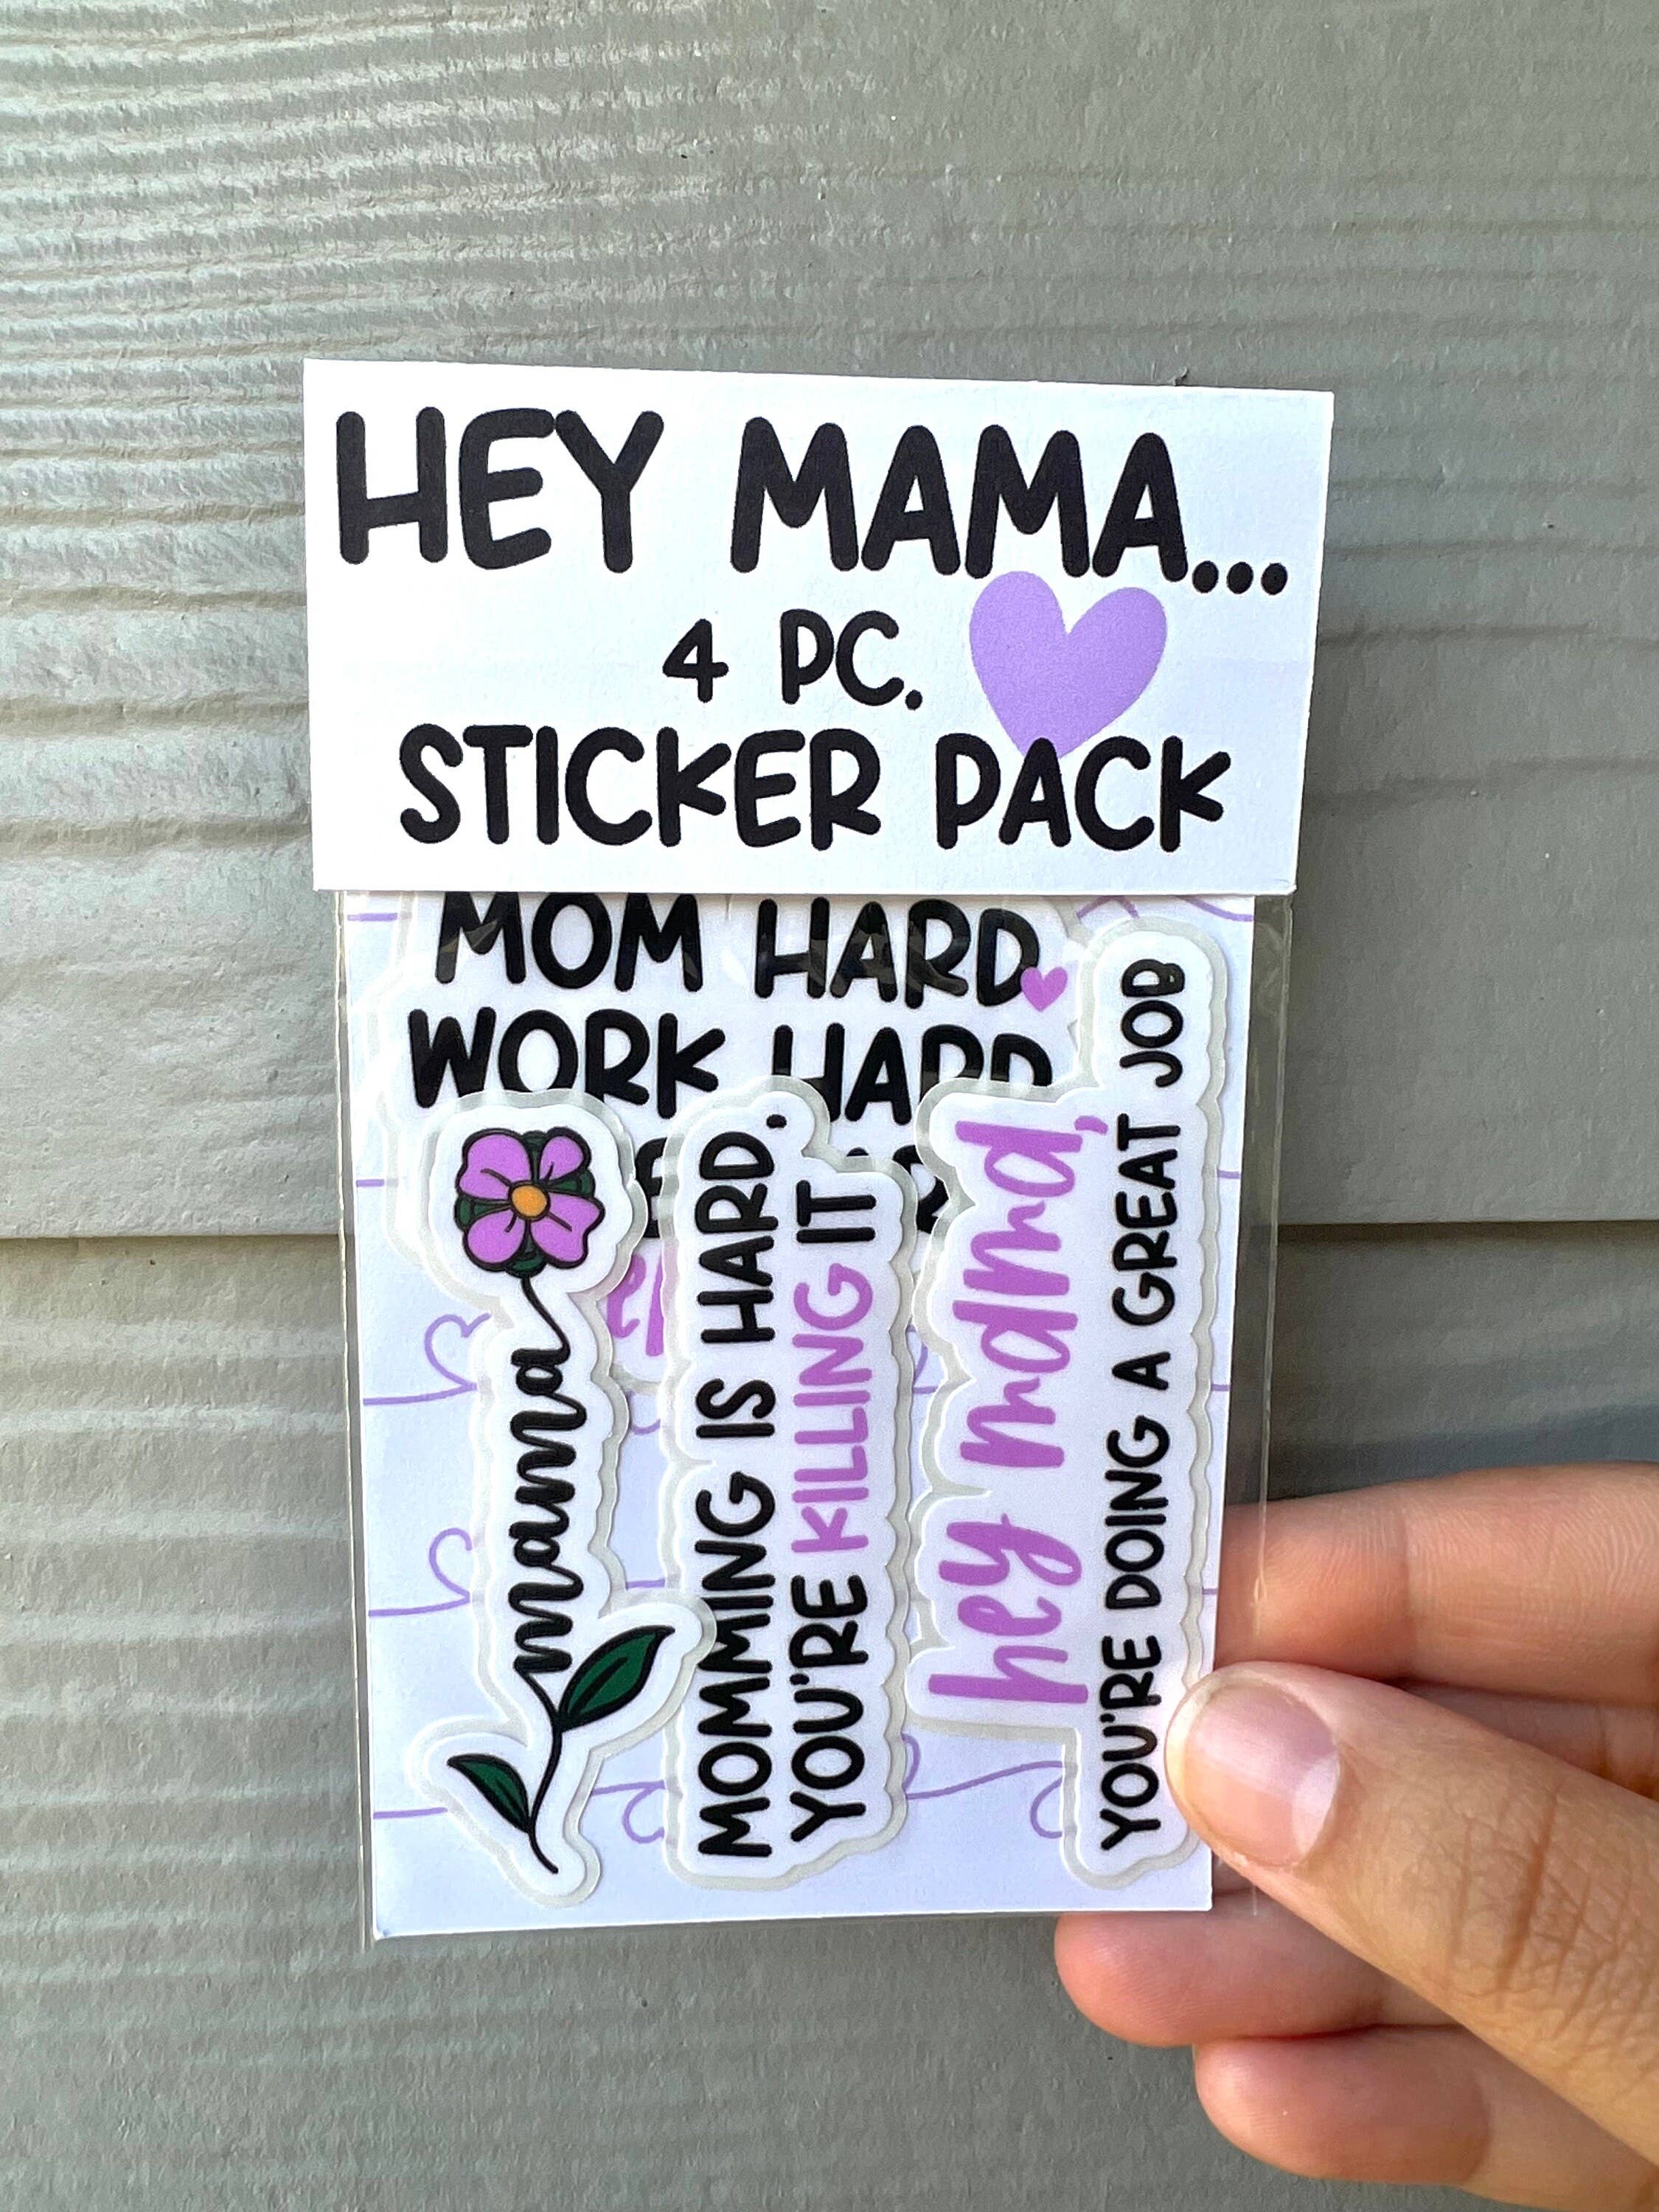 HEY MAMA...
4 PC.
STICKER PACK
MOM HARD
WORK HARD
mama
MOMMING IS HARD.
YOU'RE KILLING IT
hey mama,
YOU'RE DOING A GREAT JOB